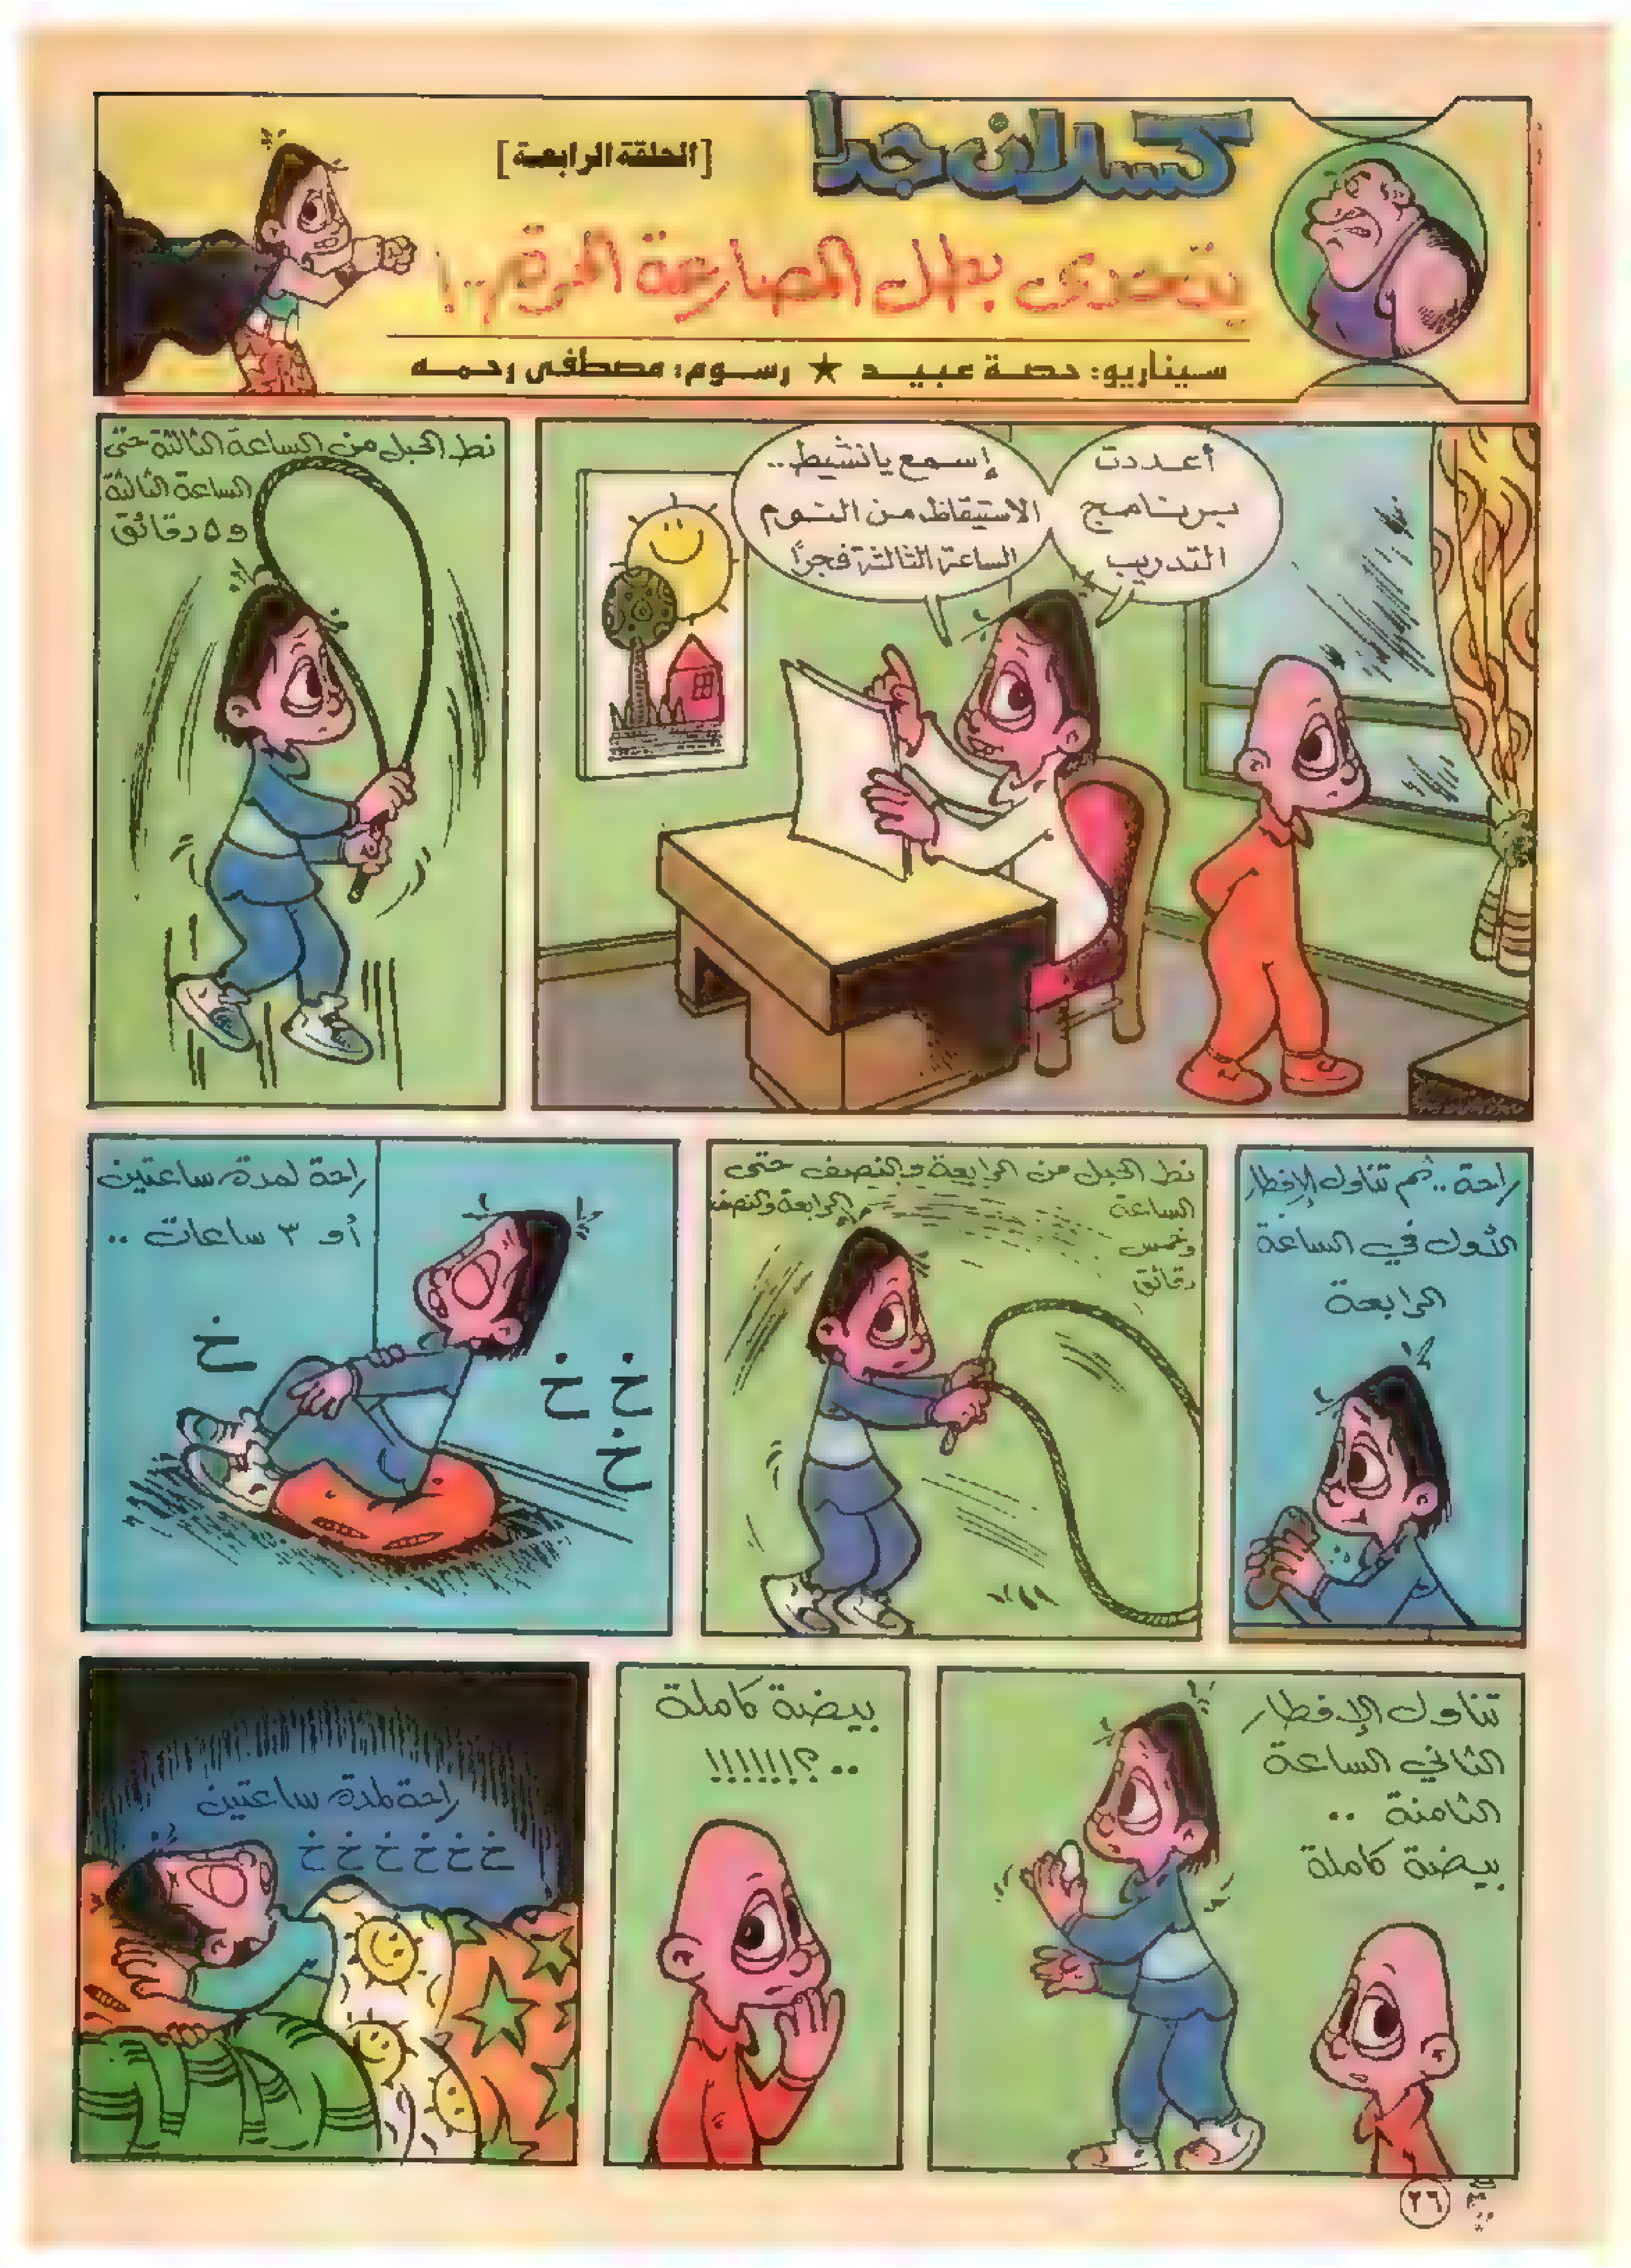 كسلان جدا
[الحلقة الرابعة]
يتحدى بطل المصارعة الحرة..!
سيناريو: حصة عبيد ★ رسوم: مصطفى رحمه
أعددت
برنامج
التدريب
إسمع يا نشيط..
الاستيقاظ من النوم
الساعة الثالثة فجرًا
نط الحبل من الساعة الثالثة حتى
الساعة الثالثة
و ٥ دقائق
راحة.. ثم تناول الإفطار
الأول في الساعة
الرابعة
نط الحبل من الرابعة والنصف حتى
الساعة الرابعة والنصف
وخمس
دقائق
راحة لمدة ساعتين
أو ٣ ساعات ..
خ
خ خ
خ
تناول الإفطار
الثاني الساعة
الثامنة ..
بيضة كاملة
بيضة كاملة
..؟!!!!!!
راحة لمدة ساعتين
خ خ خ خ خ خ
٢٦